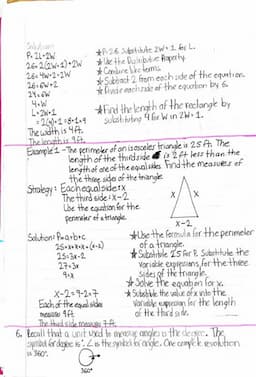 Solution:
P=2L+2W ★P=26 Substitute 2W+1 for L.
26=2(2W+1)+2W ★Use the Distributive Property.
26=4W+2+2W ★Combine like terms.
26=6W+2 ★Subtract 2 from each side of the equation.
24=6W ★Divide each side of the equation by 6.
4=W
L=2W+1 ★Find the length of the rectangle by
=2(4)+1=8+1=9 substituting 4 for W in 2W+1.
The width is 4ft.
The length is 9ft.
Example 1 - The perimeter of an isosceles triangle is 25 ft. The
length of the third side is 2 ft less than the
length of one of the equal sides. Find the measures of
the three sides of the triangle.
Strategy: Each equal side: x
The third side: x-2
Use the equation for the
perimeter of a triangle.
x x
x-2
Solution: P=a+b+c ★Use the formula for the perimeter
25=x+x+(x-2) of a triangle.
25=3x-2 ★Substitute 25 for P. Substitute the
27=3x variable expressions for the three
9=x sides of the triangle.
★Solve the equation for x.
x-2=9-2=7 ★Substitute the value of x into the
Each of the equal sides variable expression for the length
measure 9ft. of the third side.
The third side measures 7ft.
6. Recall that a unit used to measure angles is the degree. The
symbol for degree is °. ∠ is the symbol for angle. One complete revolution
is 360°.
360°